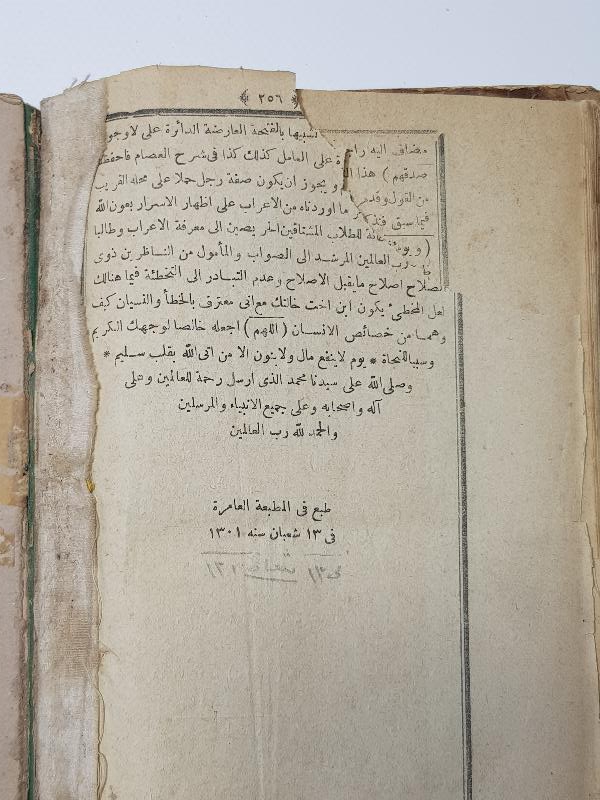 ﴿ ٢٥٦ ﴾
مضاف اليه راجع نسبيها بالفتحة العارضة الدائرة على لا وجو
صدقهم ) هذا على العامل كذلك كذا فى شرح العصام فاحفظ
من القول وقدم و يجوز ان يكون صفة رجل حملا على محله القريب
فيما سبق فتذكر ما اوردناه من الاعراب على اظهار الاسرار بعون الله
( ويوم للطلاب المشتاقين الى معرفة الاعراب وطالبا
رب العالمين المرشد الى الصواب والمأمول من الناظرين ذوى
الصلاح اصلاح ما يقبل الاصلاح وعدم التبادر الى التخطئة فيما هنالك
لعل المخطئ يكون ابن اخت خالتك مع انى معترف بالخطأ والنسيان كيف
وهما من خصائص الانسان ( اللهم ) اجعله خالصا لوجهك الكريم
وسببا للنجاة * يوم لا ينفع مال ولا بنون الا من اتى الله بقلب سليم *
وصلى الله على سيدنا محمد الذى ارسل رحمة للعالمين وعلى
آله واصحابه وعلى جميع الانبياء والمرسلين
والحمد لله رب العالمين
طبع فى المطبعة العامرة
فى ١٣ شعبان سنه ١٣٠١